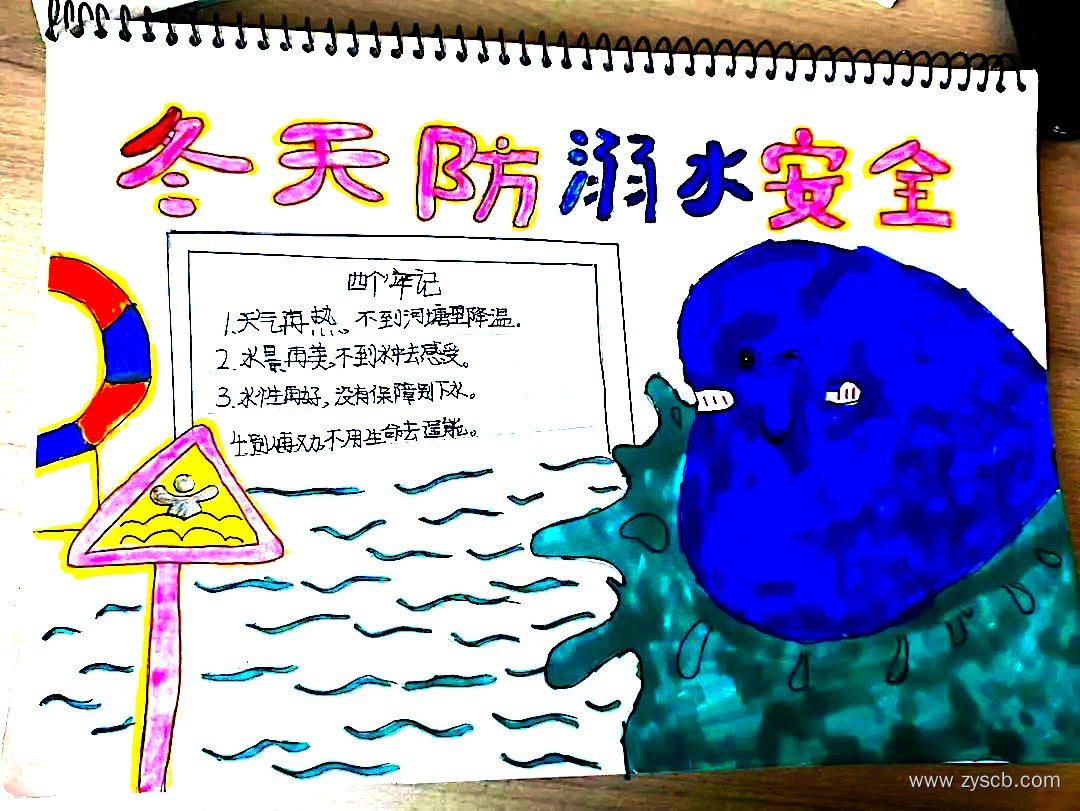 冬天防溺水安全
四个牢记
1.天气再热、不到河塘里降温.
2.水景再美,不到水中去感受。
3.水性再好,没有保障别下水。
不用生命去逞能。
www.zyscb.com